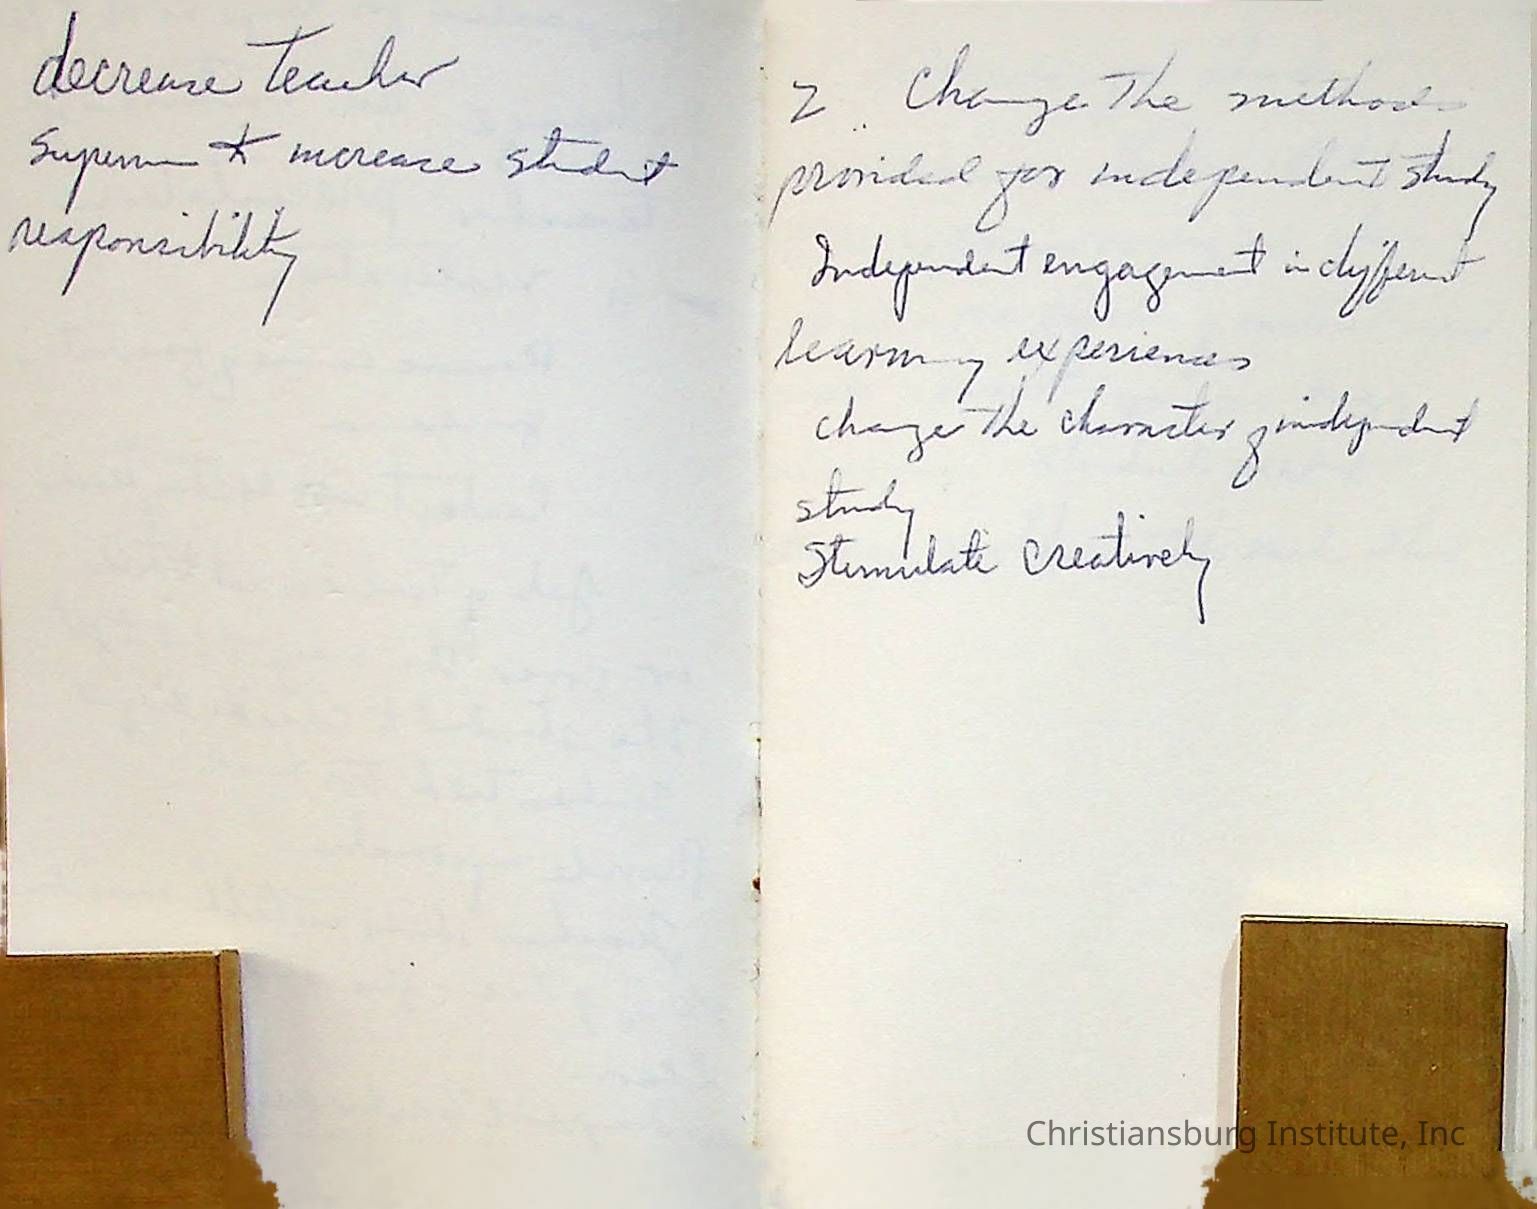 decrease teacher
Supervision & increase student
responsibility
2. Change the methods
provided for independent study
Independent engagement in different
learning experiences
change the character of independent
study
Stimulate creatively
Christiansburg Institute, Inc